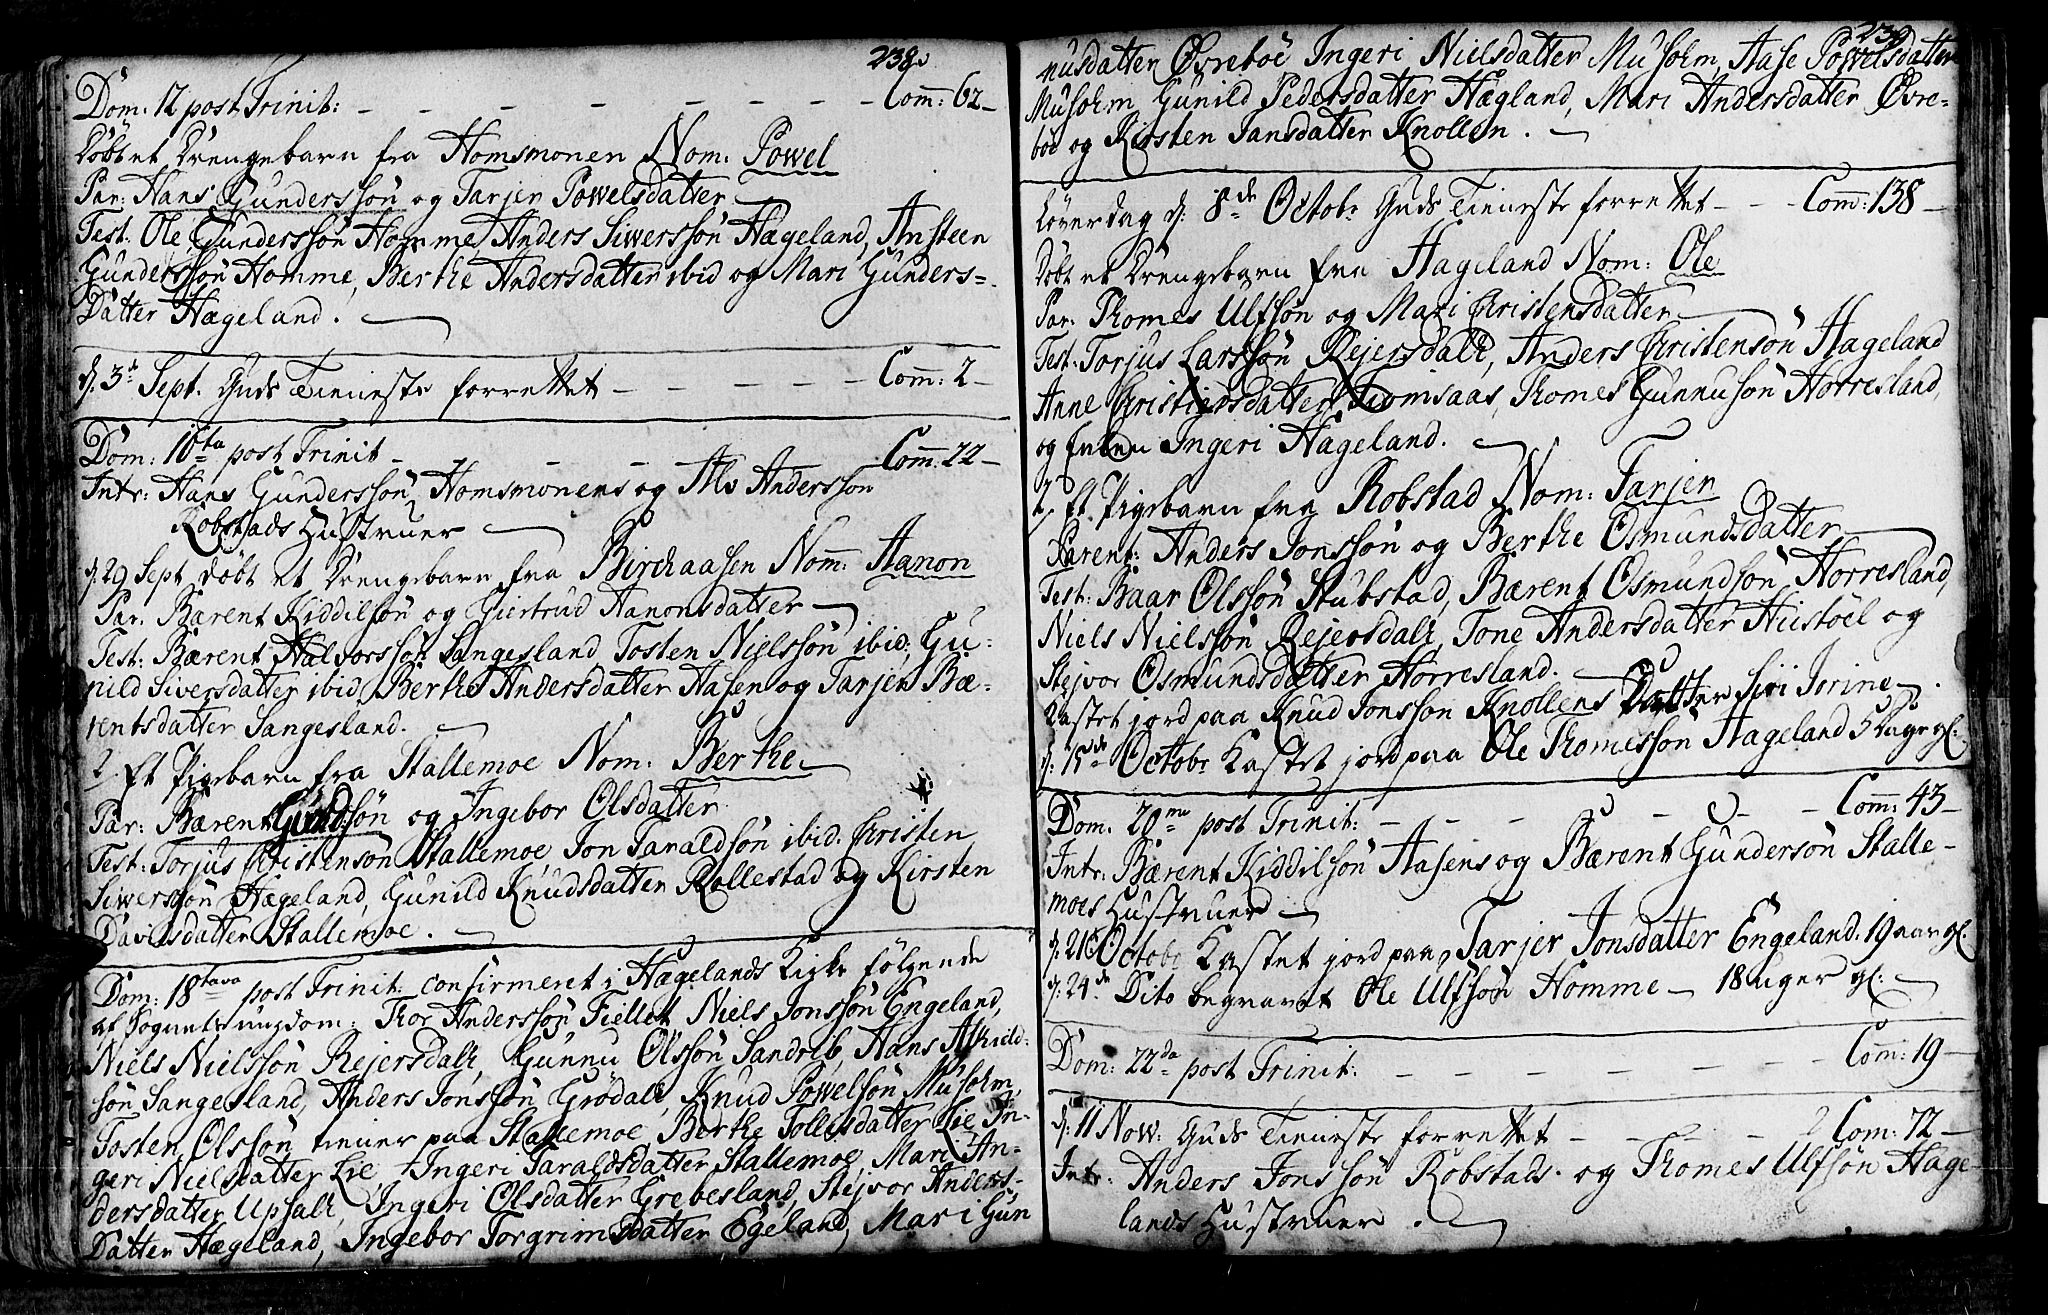 238.
Dom: 12 post Trinit: - - - - - - - - Com̄: 62-
Döbt et Drengebarn fra Homsmonen Nom: Powel
Par: Hans Gunderssön og Tarjer Powelsdatter
Test: Ole Gunderssön Homme, Anders Siwerssön Hægeland, Ansteen
Gunderssön Homme, Berthe Andersdatter ibid og Mari Gunders=
Datter Hægeland.
d. 3d Sept. Guds Tieneste forrettet - - - - - Com̄: 2-
Dom: 16ta post Trinit - - - - - - Com̄: 22-
Intr: Hans Gunderssön Homsmonens og Als Anderssön
Robstads Hustruer
d. 29 Sept döbt et Drengebarn fra Birchaasen Nom̄: Aanon
Par: Bærent Kiddilsön og Giertrud Aanonsdatter
Test: Bærent Halvorssön Sangesland Tosten Nielssön ibid, Gu=
nild Siversdatter ibid, Berthe Andersdatter Aasen og Tarjer Bæ=
rentsdatter Sangesland.
2 Et Pigebarn fra Stallemoe Nom: Berthe
Par: Bærent Gundsön og Ingebor Olsdatter
Test: Torjus Christensön Stallemoe, Jon Taraldsön ibid. Christen
Siwerssön Hægeland, Gunild Knudsdatter Rollestad og Kirsten
Davidsdatter Stallemoe.
Dom: 18tava post Trinit: confirmeret i Hægelands Kirke fölgende
af Sognets ungdom: Thor Anderssön Fiellet, Niels Jonssön Engeland,
Niels Nielssön Rejersdall, Gunnu Olssön Sandrib, Hans Askild=
sön Sangesland, Anders Jonssön Grödall, Knud Powelsön Musolm,
Tosten Olssön tiener paa Stallemoe, Berthe Tollefsdatter Lie, In=
geri Nielsdatter Lie, Ingeri Taraldsdatter Stallemoe, Mari An=
dersdatter Upsall, Ingeri Olsdatter Grebesland, Stejvor Anders=
Datter Hægeland, Ingebor Torgrimsdatter Egeland, Mari Gun
239
nusdatter Øvreboe Ingeri Nielsdatter Musolm, Aase Powelsdatter
Musolm Gunild Pedersdatter Hægland, Mari Andersdatter Øvre=
boe og Kirsten Jansdatter Knollen.
Löverdag d: 8de Octobr Guds Tieneste forrettet - - - Com̄: 138-
Döbt et Drengebarn fra Hageland Nom: Ole
Par: Thomes Ulfsön og Mari Christensdatter
Test: Torjus Larssön Rejersdall, Anders Christensön Hageland
Anne Christensdatter Homsaas, Thomes Gunnusön Horresland,
og Enken Ingeri Hageland.
2, Et Pigebarn fra Robstad Nom: Tarjer
Parent: Anders Jonssön og Berthe Osmundsdatter
Test: Baar Olssön Stubstad, Bærent Osmundsön Horresland,
Niels Nielssön Rejersdall, Tone Andersdatter Hustöel og
Stejvor Osmundsdatter Horresland.
Kastet jord paa Knud Jonssön Knollens Datter Siri Jorine
d: 15de Octobr Kastet jord paa Ole Thomessön Hageland 5 Dage gl:
Dom: 20me post Trinit: - - - - - - Com̄: 43-
Intr: Bærent Kiddilsön Aasens og Bærent Gundersön Stalle-
moes Hustruer
d: 21 Octobr Kastet jord paa Tarjer Jonsdatter Engeland. 19 aar gl.
d: 24de Dito begravet Ole Ulfsön Homme - 18 uger gl:
Dom: 22da post Trinit: - - - - - - Com̄: 19-
d: 11 Now: Guds Tieneste forrettet - - - - Com: 72-
Intr: Anders Jonssön Robstads. og Thomes Ulfsön Hage-
lands Hustruer.